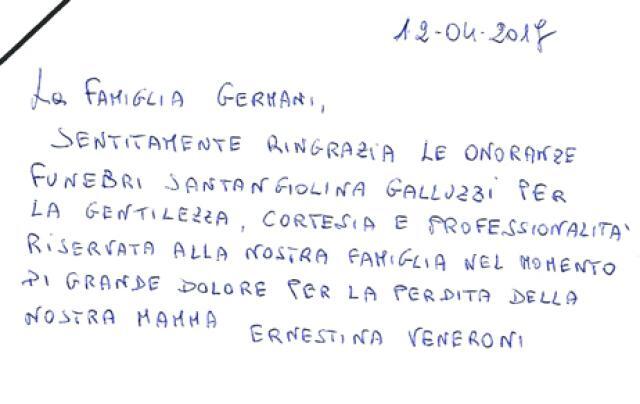 12-04-2017
La FAMIGLIA GERMANI,
SENTITAMENTE RINGRAZIA LE ONORANZE
FUNEBRI SANTANGIOLINA GALLUZZI PER
LA GENTILEZZA, CORTESIA E PROFESSIONALITA'
RISERVATA ALLA NOSTRA FAMIGLIA NEL MOMENTO
DI GRANDE DOLORE PER LA PERDITA DELLA
NOSTRA MAMMA ERNESTINA VENERONI